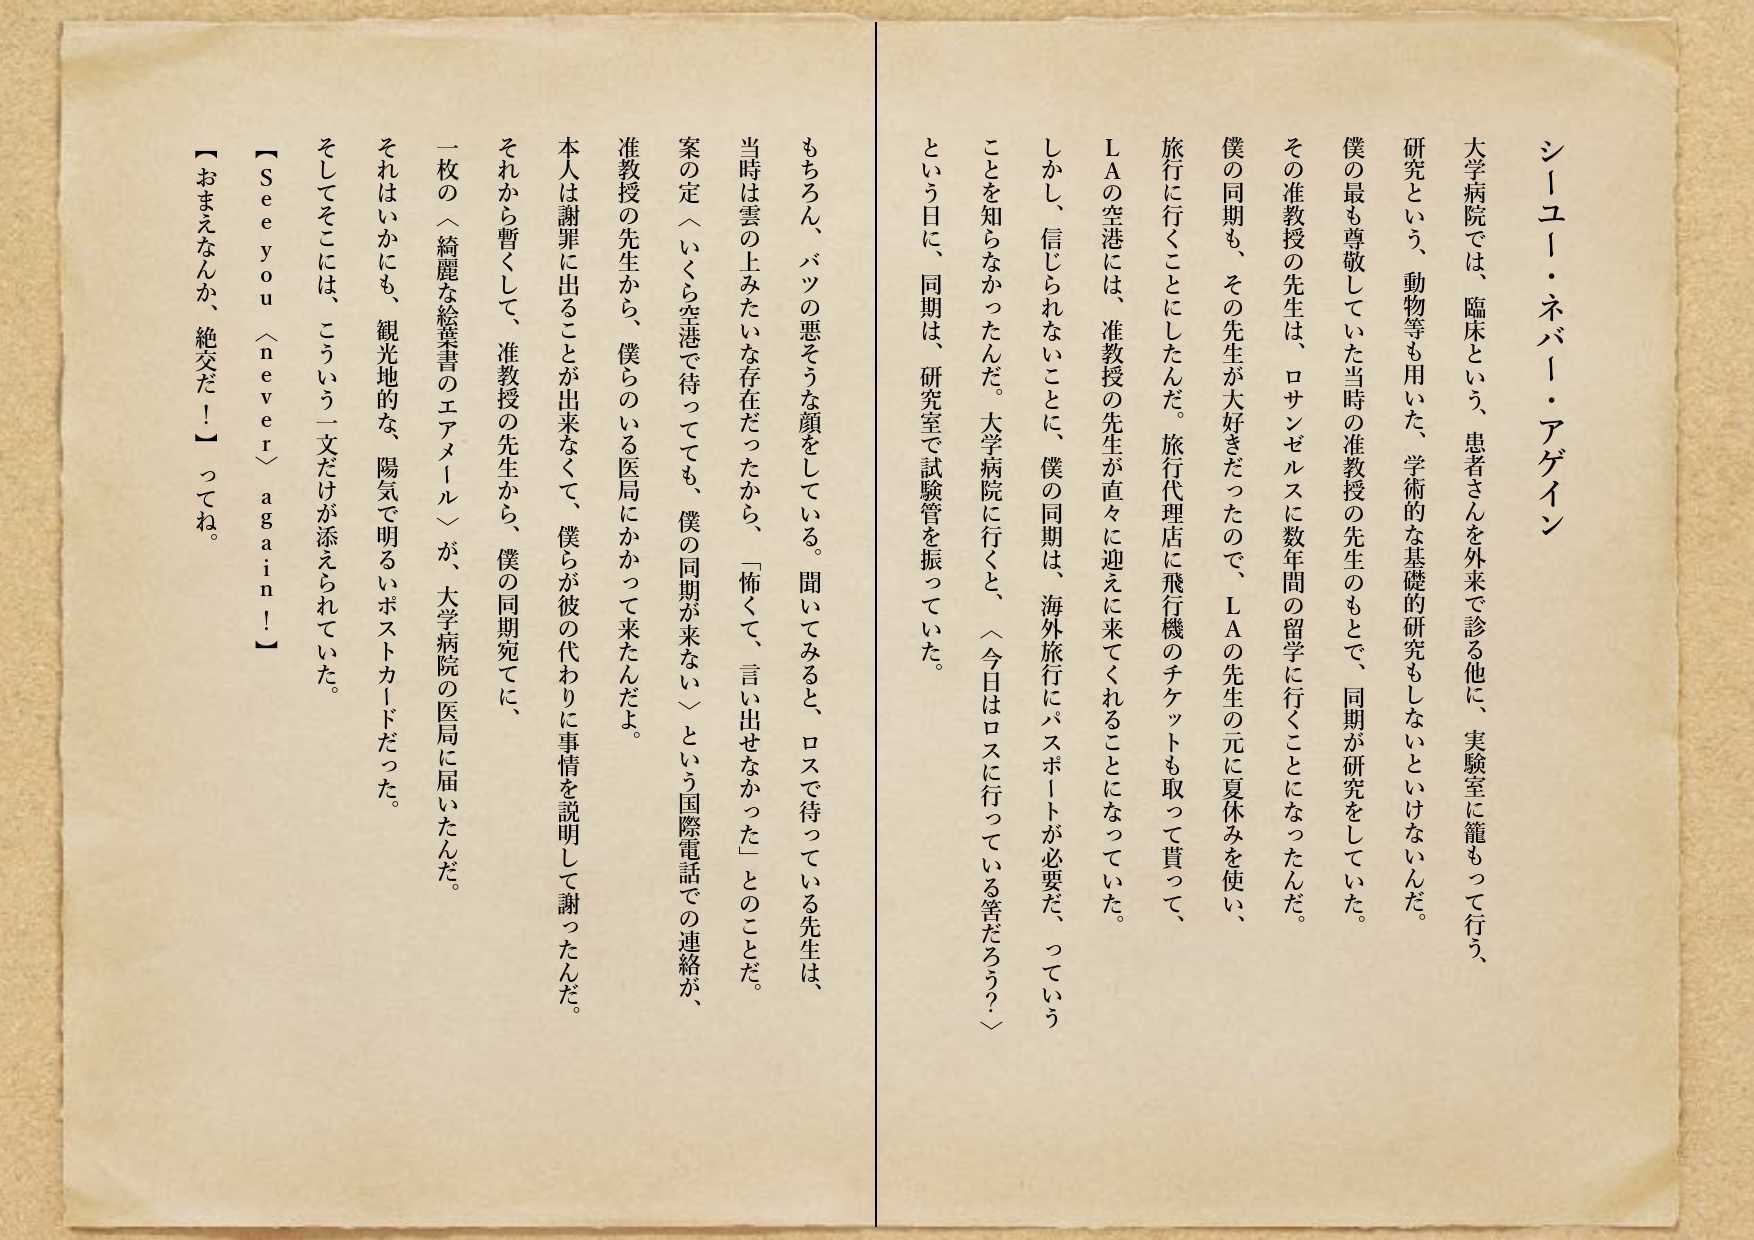 シーユー・ネバー・アゲイン
大学病院では、臨床という、患者さんを外来で診る他に、実験室に籠もって行う、
研究という、動物等も用いた、学術的な基礎的研究もしないといけないんだ。
僕の最も尊敬していた当時の准教授の先生のもとで、同期が研究をしていた。
その准教授の先生は、ロサンゼルスに数年間の留学に行くことになったんだ。
僕の同期も、その先生が大好きだったので、ＬＡの先生の元に夏休みを使い、
旅行に行くことにしたんだ。旅行代理店に飛行機のチケットも取って貰って、
ＬＡの空港には、准教授の先生が直々に迎えに来てくれることになっていた。
しかし、信じられないことに、僕の同期は、海外旅行にパスポートが必要だ、っていう
ことを知らなかったんだ。大学病院に行くと、〈今日はロスに行っている筈だろう？〉
という日に、同期は、研究室で試験管を振っていた。
もちろん、バツの悪そうな顔をしている。聞いてみると、ロスで待っている先生は、
当時は雲の上みたいな存在だったから、「怖くて、言い出せなかった」とのことだ。
案の定〈いくら空港で待ってても、僕の同期が来ない〉という国際電話での連絡が、
准教授の先生から、僕らのいる医局にかかって来たんだよ。
本人は謝罪に出ることが出来なくて、僕らが彼の代わりに事情を説明して謝ったんだ。
それから暫くして、准教授の先生から、僕の同期宛てに、
一枚の〈綺麗な絵葉書のエアメール〉が、大学病院の医局に届いたんだ。
それはいかにも、観光地的な、陽気で明るいポストカードだった。
そしてそこには、こういう一文だけが添えられていた。
【See you〈never〉again！】
【おまえなんか、絶交だ！】ってね。